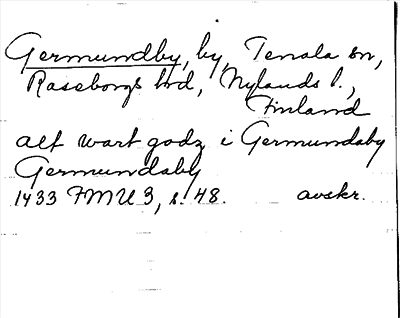 Germundby, by, Tenala sn,
Raseborgs hrd, Nylands l.,
Finland
alt wart godz i Germundaby
Germundaby
1433 FMU 3, s. 48. avskr.